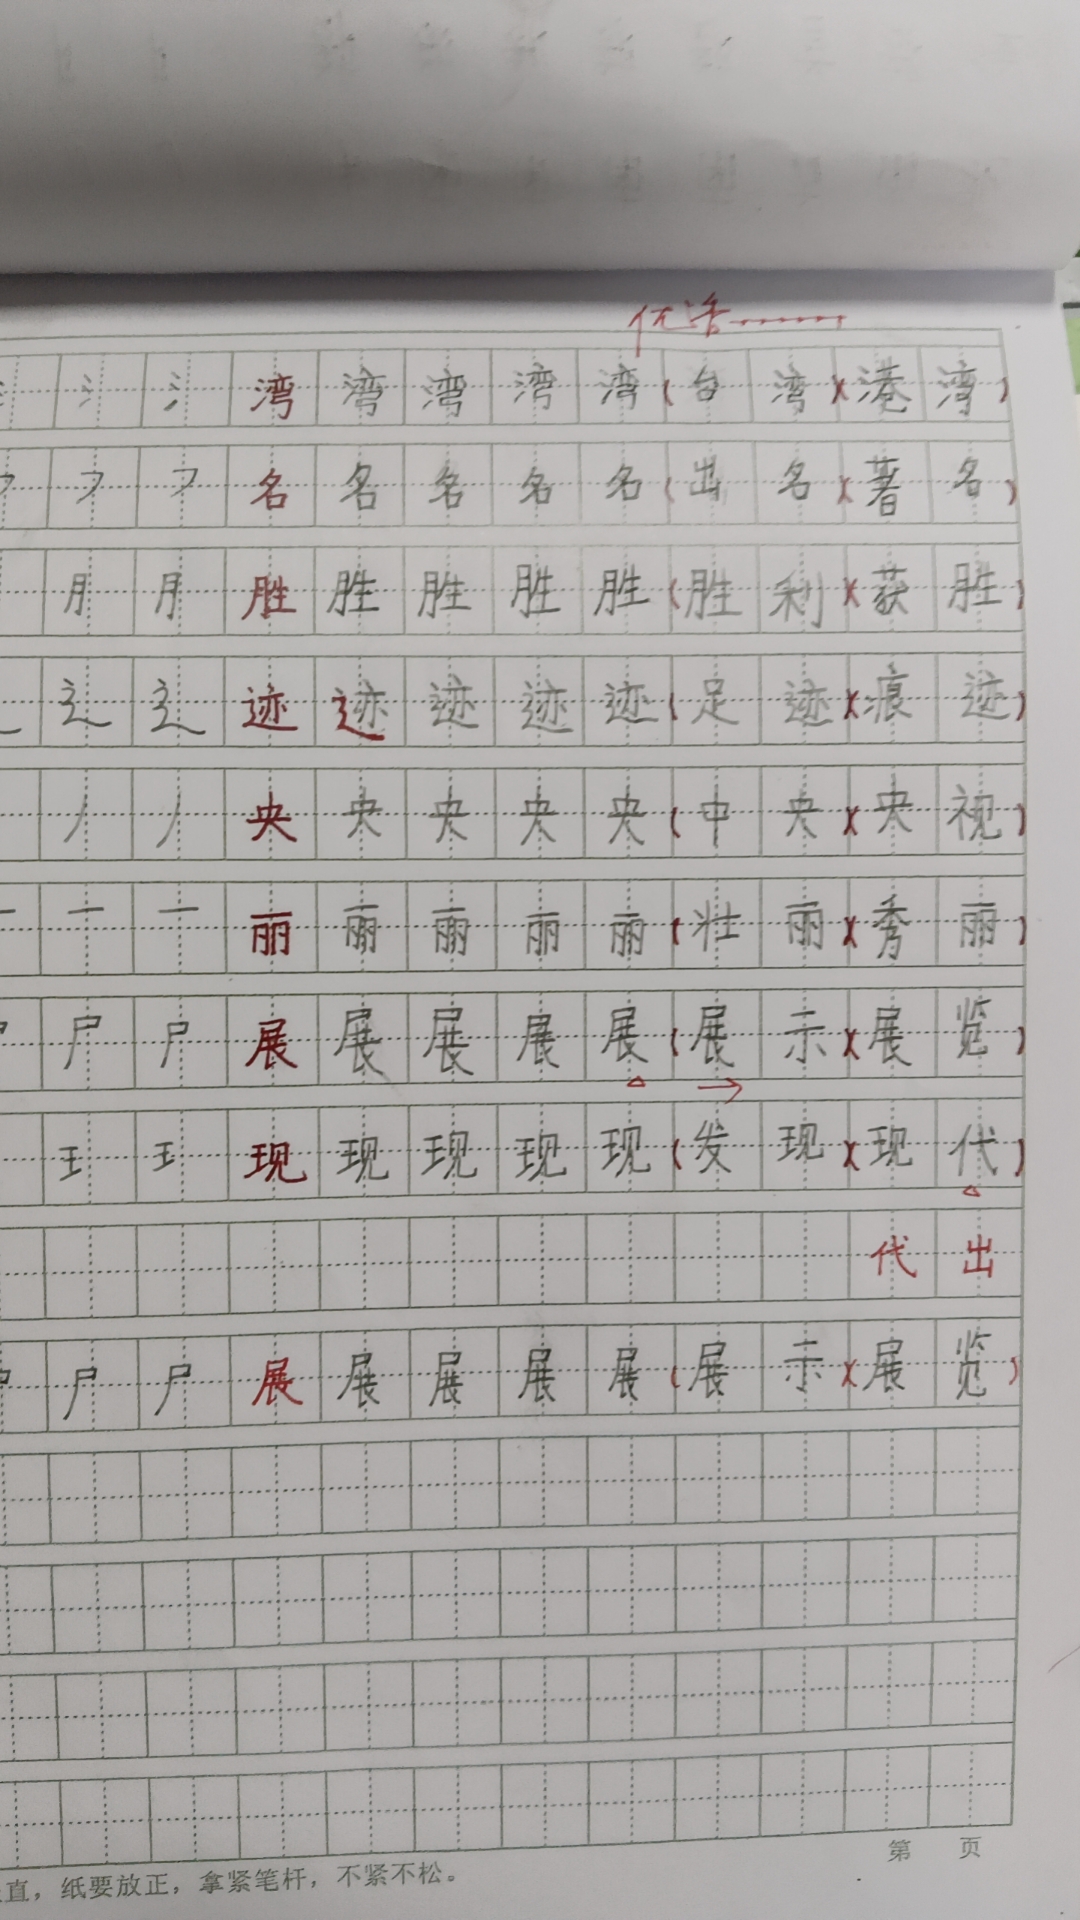 氵 氵 湾 湾 湾 湾 湾 (台 湾)(港 湾)
名 名 名 名 名 (出 名)(著 名)
月 月 胜 胜 胜 胜 胜 (胜 利)(获 胜)
辶 辶 迹 迹 迹 迹 迹 (足 迹)(痕 迹)
丿 丿 央 央 央 央 央 (中 央)(央 视)
一 一 一 丽 丽 丽 丽 丽 (壮 丽)(秀 丽)
尸 尸 展 展 展 展 展 (展 示)(展 览)
王 王 现 现 现 现 现 (发 现)(现 代)
代 出
尸 尸 展 展 展 展 展 (展 示)(展 览)
第 页
直，纸要放正，拿紧笔杆，不紧不松。